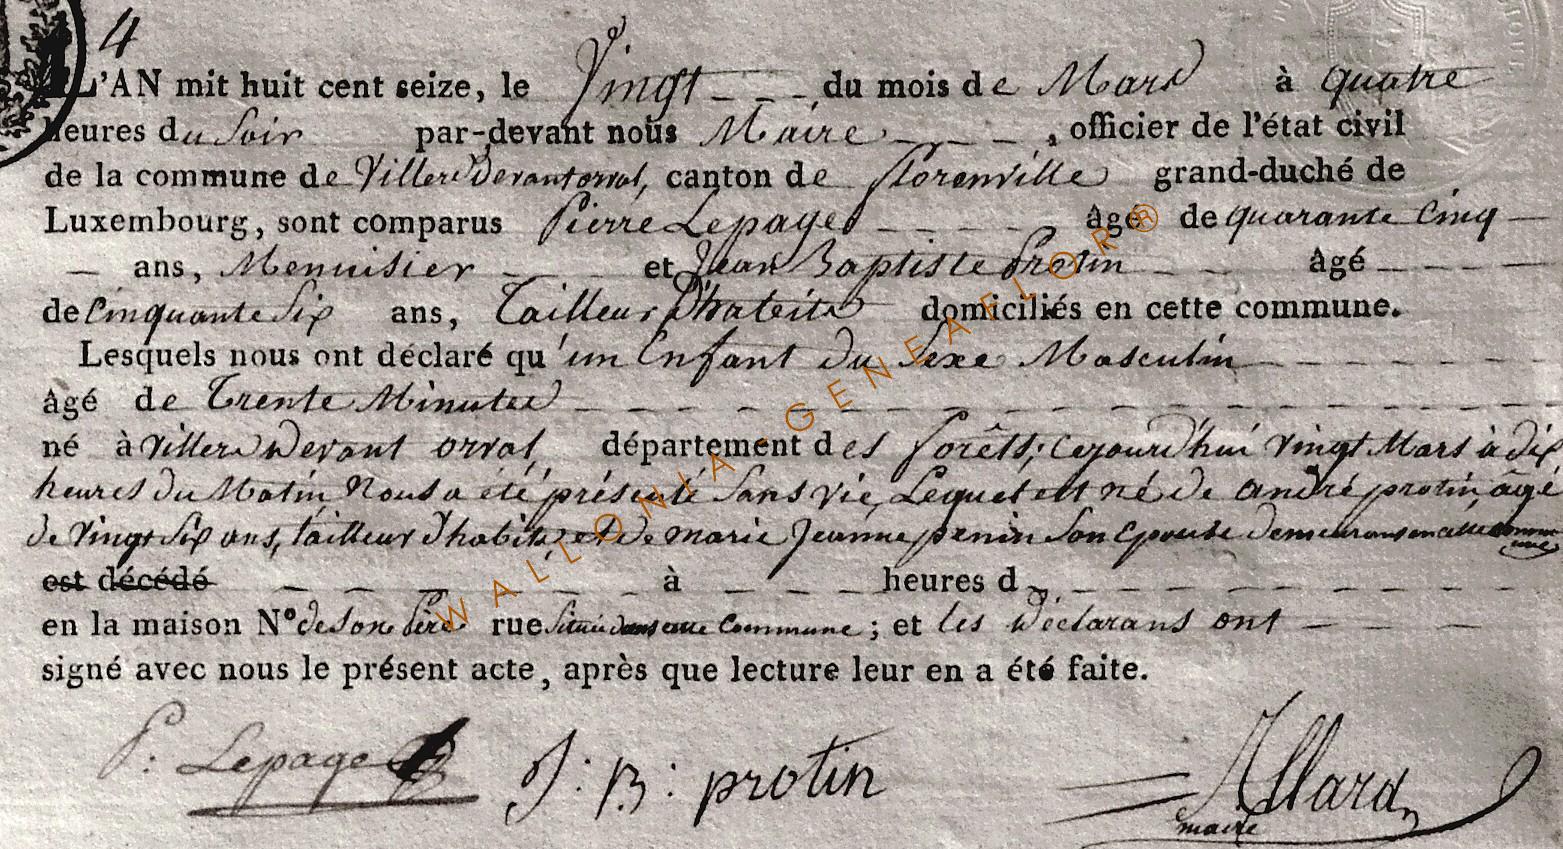 4
L'AN mit huit cent seize, le Vingt du mois de Mars à quatre
heures du Soir par-devant nous Maire, officier de l'état civil
de la commune de Villers Devant orval, canton de florenville grand-duché de
Luxembourg, sont comparus Pierre Lepage âgé de quarante Cinq
ans, Menuisier et Jean Baptiste Protin âgé
de Cinquante Six ans, Tailleur D'habits domiciliés en cette commune.
Lesquels nous ont déclaré qu'un Enfant du Sexe Masculin
âgé de Trente Minutes
né à Villers Devant orval, département des forêts, cejourd'hui vingt Mars à dix
heures du Matin Nous a été présenté Sans vie, Lequel est né de andré protin, âgé
de Vingt Six ans, tailleur d'habits, et de marie Jeanne penin Son Epouse demeurans en cette commune
est décédé à heures d
en la maison N° de Son Père rue Située dans cette Commune; et les Déclarans ont
signé avec nous le présent acte, après que lecture leur en a été faite.
P: Lepage J: B: protin Allard
maire
WALLONIA-GENEAFLOR®